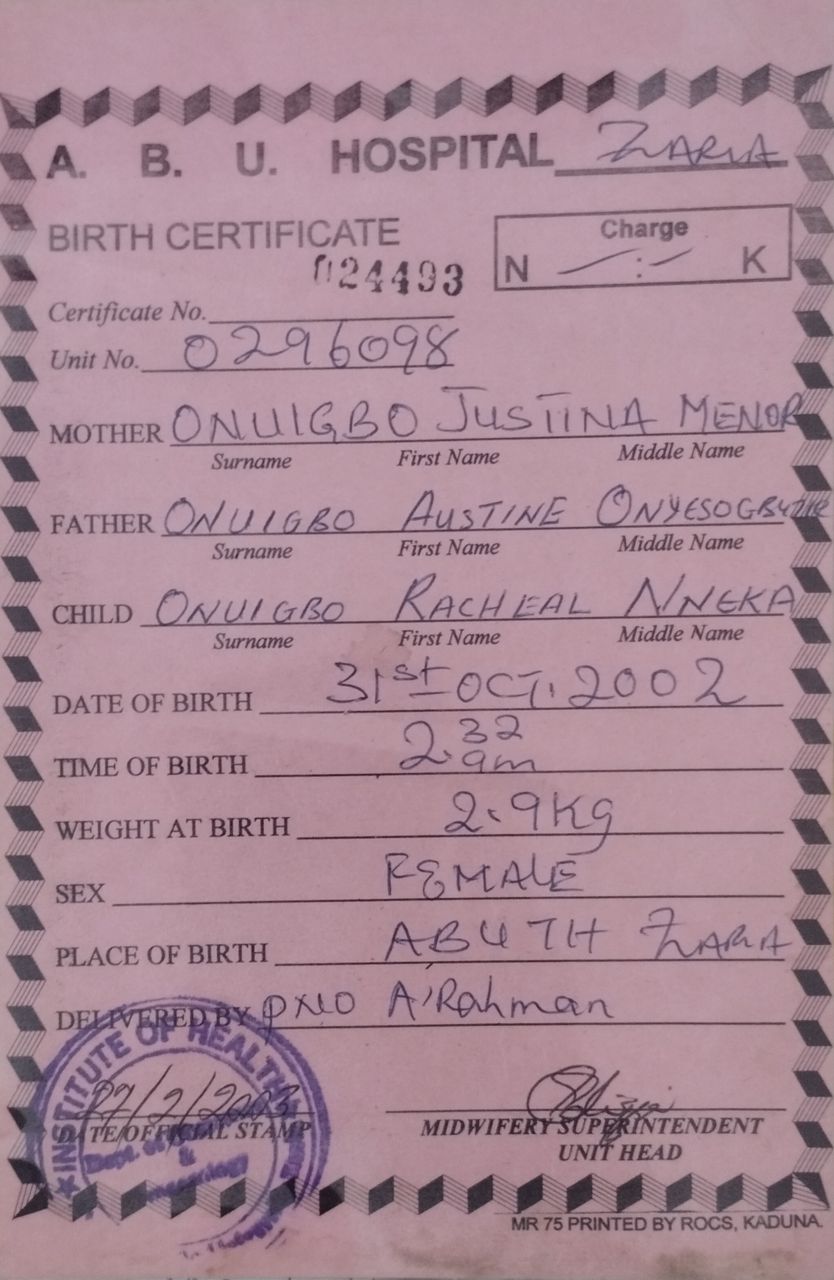 A. B. U. HOSPITAL ZARIA
BIRTH CERTIFICATE
Charge
N — : — K
024493
Certificate No.
Unit No. 0296098
MOTHER ONUIGBO JUSTINA MENOR
Surname First Name Middle Name
FATHER ONUIGBO AUSTINE
Surname First Name Middle Name
CHILD ONUIGBO RACHEAL NNEKA
Surname First Name Middle Name
DATE OF BIRTH 31st OCT. 2002
TIME OF BIRTH 2.32 am
WEIGHT AT BIRTH 2.9Kg
SEX FEMALE
PLACE OF BIRTH ABUTH ZARIA
DELIVERED BY PNO A'Rahman
INSTITUTE OF HEALTH
Dept. of
&
/2/2003
DATE/OFFICIAL STAMP
MIDWIFERY SUPERINTENDENT
UNIT HEAD
MR 75 PRINTED BY ROCS, KADUNA.